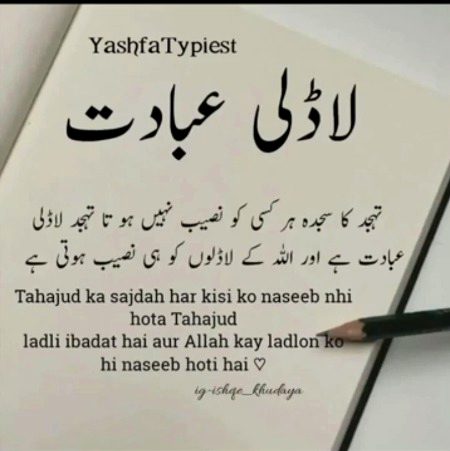 YashfaTypiest
لاڈلی عبادت
تہجد کا سجدہ ہر کسی کو نصیب نہیں ہو تا تہجد لاڈلی
عبادت ہے اور اللہ کے لاڈلوں کو ہی نصیب ہوتی ہے
Tahajud ka sajdah har kisi ko naseeb nhi
hota Tahajud
ladli ibadat hai aur Allah kay ladlon ko
hi naseeb hoti hai ♡
ig-ishqe_khudaya